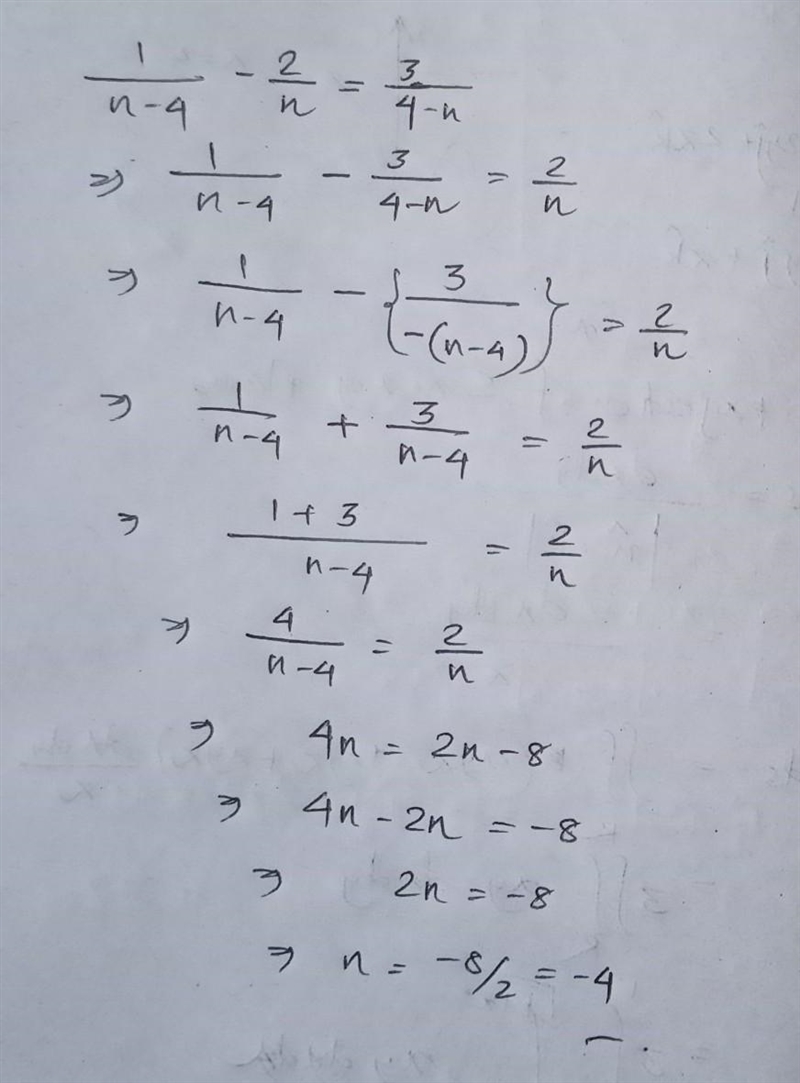 1/(n-4) - 2/n = 3/(4-n)
⇒ 1/(n-4) - 3/(4-n) = 2/n
⇒ 1/(n-4) - {3/(-(n-4))} = 2/n
⇒ 1/(n-4) + 3/(n-4) = 2/n
⇒ (1+3)/(n-4) = 2/n
⇒ 4/(n-4) = 2/n
⇒ 4n = 2n-8
⇒ 4n-2n = -8
⇒ 2n = -8
⇒ n = -8/2 = -4